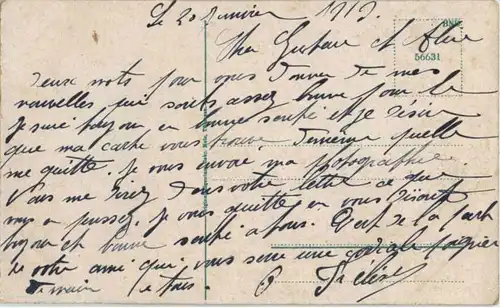 Le 20 Janvier 1919
BNK
56631
Cher Gustave et Aline
Deux mots pour vous donner de mes
nouvelles qui sont assez bonne pour le
je suis toujour en bonne santé et je désire
que ma carte vous trouve de même quelle
me quitte. je vous envoie ma photographie
Vous me direz dans votre lettre ce que
vous en pensez. je vous quitte en vous disant
bonjour et bonne santé a tous. C'est de la part
de votre ami qui vous serre une cordiale
main a tous.